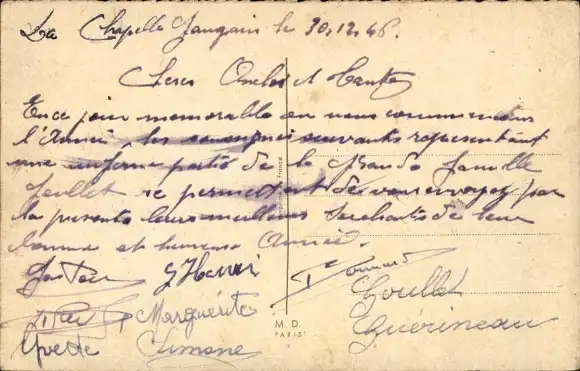 La Chapelle Gaugain le 30.12.46.
Chers Oncles et Tantes
En ce jour memorable ou nous commencons
l'Année les soussignés suivants representant
une infirme partie de la Grande famille
Goullet se permettent de vous envoyer par
la presente leurs meilleurs souhaits de
bonne et heureuse Année.
Marguerite
Goullet
Guérineau
Yvette Simone
M. D.
PARIS
France